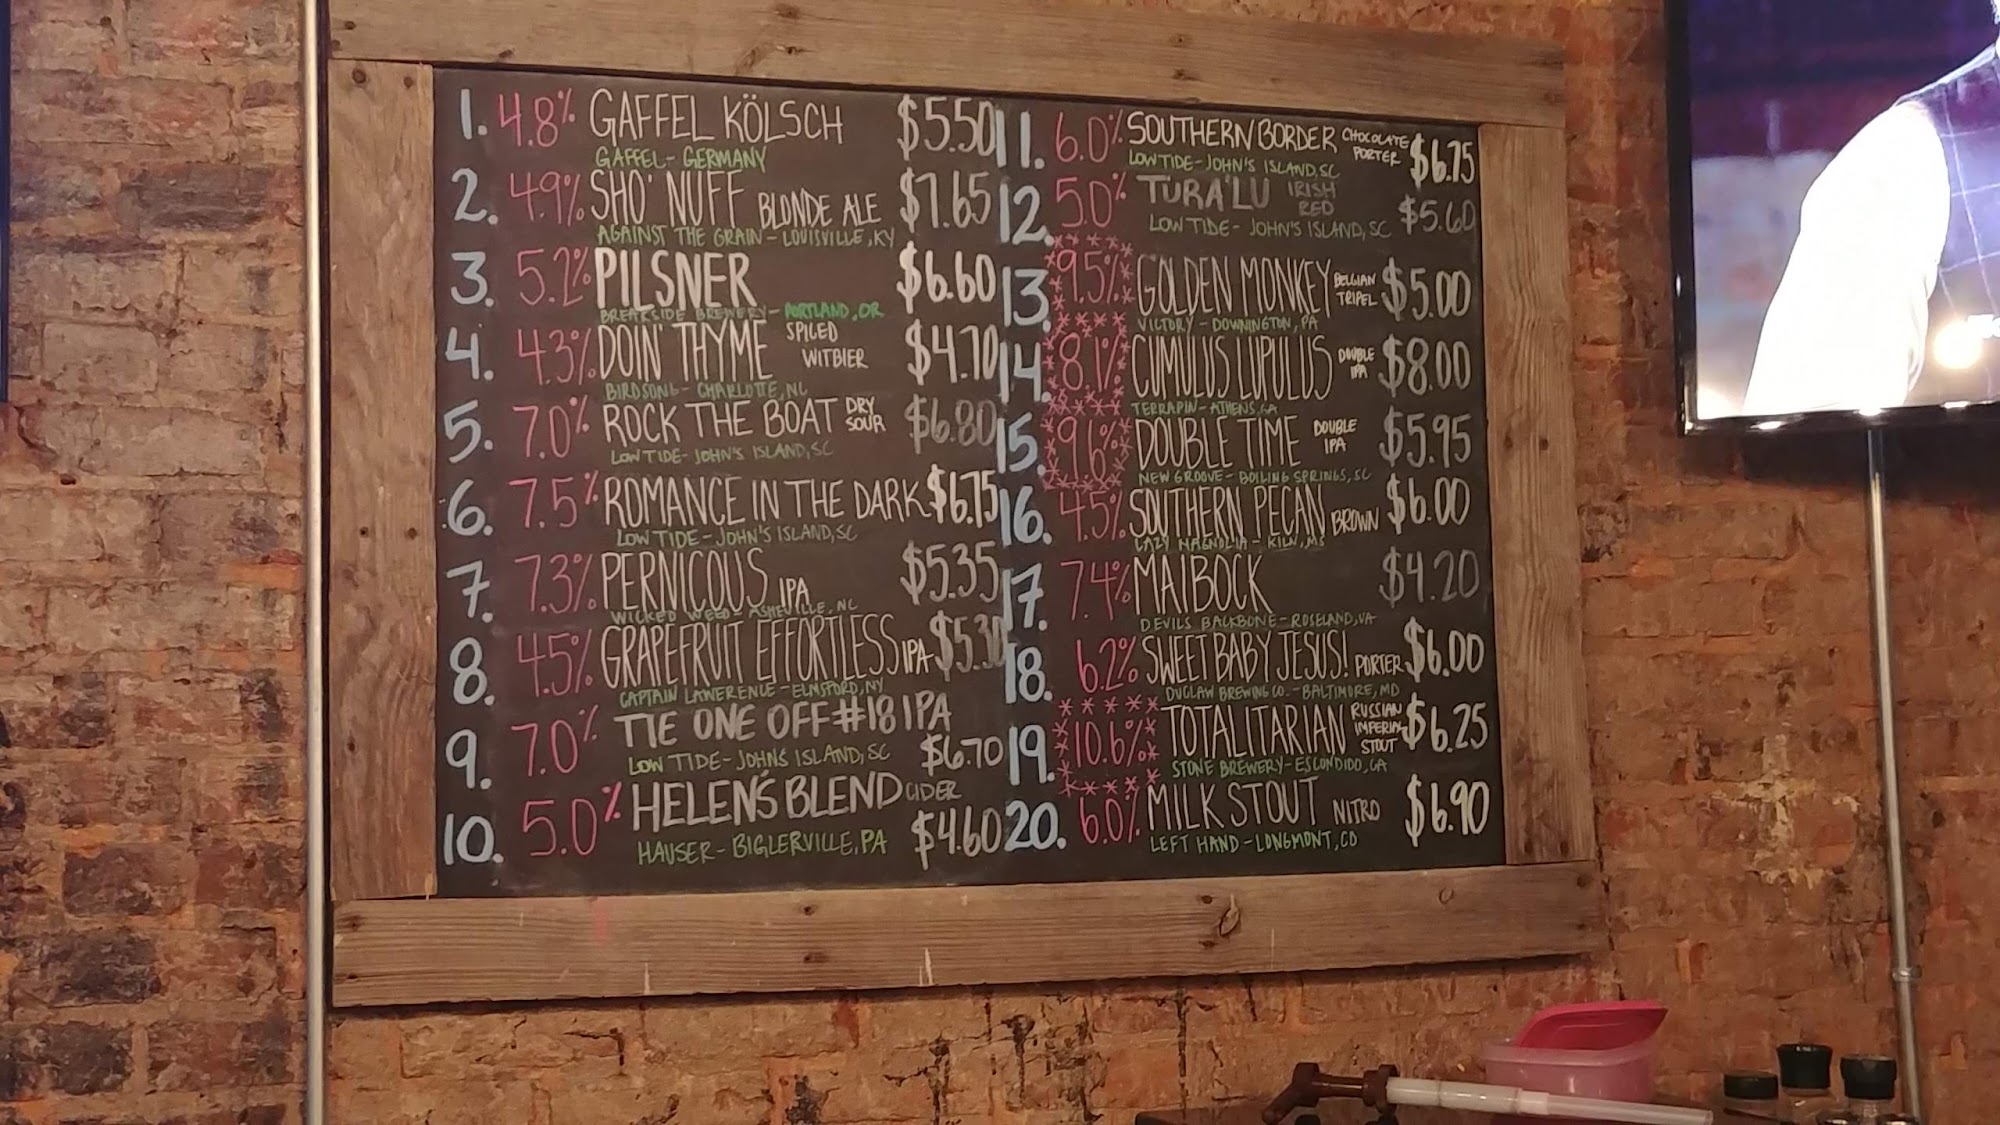 1. 4.8% GAFFEL KÖLSCH $5.50
GAFFEL - GERMANY
2. 4.9% SHO' NUFF BLONDE ALE $7.65
AGAINST THE GRAIN - LOUISVILLE, KY
3. 5.2% PILSNER $6.60
BREAKSIDE BREWERY - PORTLAND, OR
4. 4.3% DOIN' THYME SPICED WITBIER $4.70
BIRDSONG - CHARLOTTE, NC
5. 7.0% ROCK THE BOAT DRY SOUR $6.80
LOW TIDE - JOHN'S ISLAND, SC
6. 7.5% ROMANCE IN THE DARK $6.75
LOW TIDE - JOHN'S ISLAND, SC
7. 7.3% PERNICOUS IPA $5.35
WICKED WEED - ASHEVILLE, NC
8. 4.5% GRAPEFRUIT EFFORTLESS IPA $5.30
CAPTAIN LAWERENCE - ELMSFORD, NY
9. 7.0% TIE ONE OFF #18 IPA
LOW TIDE - JOHN'S ISLAND, SC $6.70
10. 5.0% HELEN'S BLEND CIDER
HAUSER - BIGLERVILLE, PA $4.60
11. 6.0% SOUTHERN BORDER CHOCOLATE PORTER $6.75
LOW TIDE - JOHN'S ISLAND, SC
12. 5.0% TURA'LU IRISH RED $5.60
LOW TIDE - JOHN'S ISLAND, SC
13. 9.5% GOLDEN MONKEY BELGIAN TRIPEL $5.00
VICTORY - DOWNINGTON, PA
14. 8.1% CUMULUS LUPULUS DOUBLE IPA $8.00
TERRAPIN - ATHENS, GA
15. 9.6% DOUBLE TIME DOUBLE IPA $5.95
NEW GROOVE - BOILING SPRINGS, SC
16. 4.5% SOUTHERN PECAN BROWN $6.00
LAZY MAGNOLIA - KILN, MS
17. 7.4% MAIBOCK $4.20
DEVILS BACKBONE - ROSELAND, VA
18. 6.2% SWEET BABY JESUS! PORTER $6.00
DUCLAW BREWING CO. - BALTIMORE, MD
19. 10.6% TOTALITARIAN RUSSIAN IMPERIAL STOUT $6.25
STONE BREWERY - ESCONDIDO, CA
20. 6.0% MILK STOUT NITRO $6.90
LEFT HAND - LONGMONT, CO